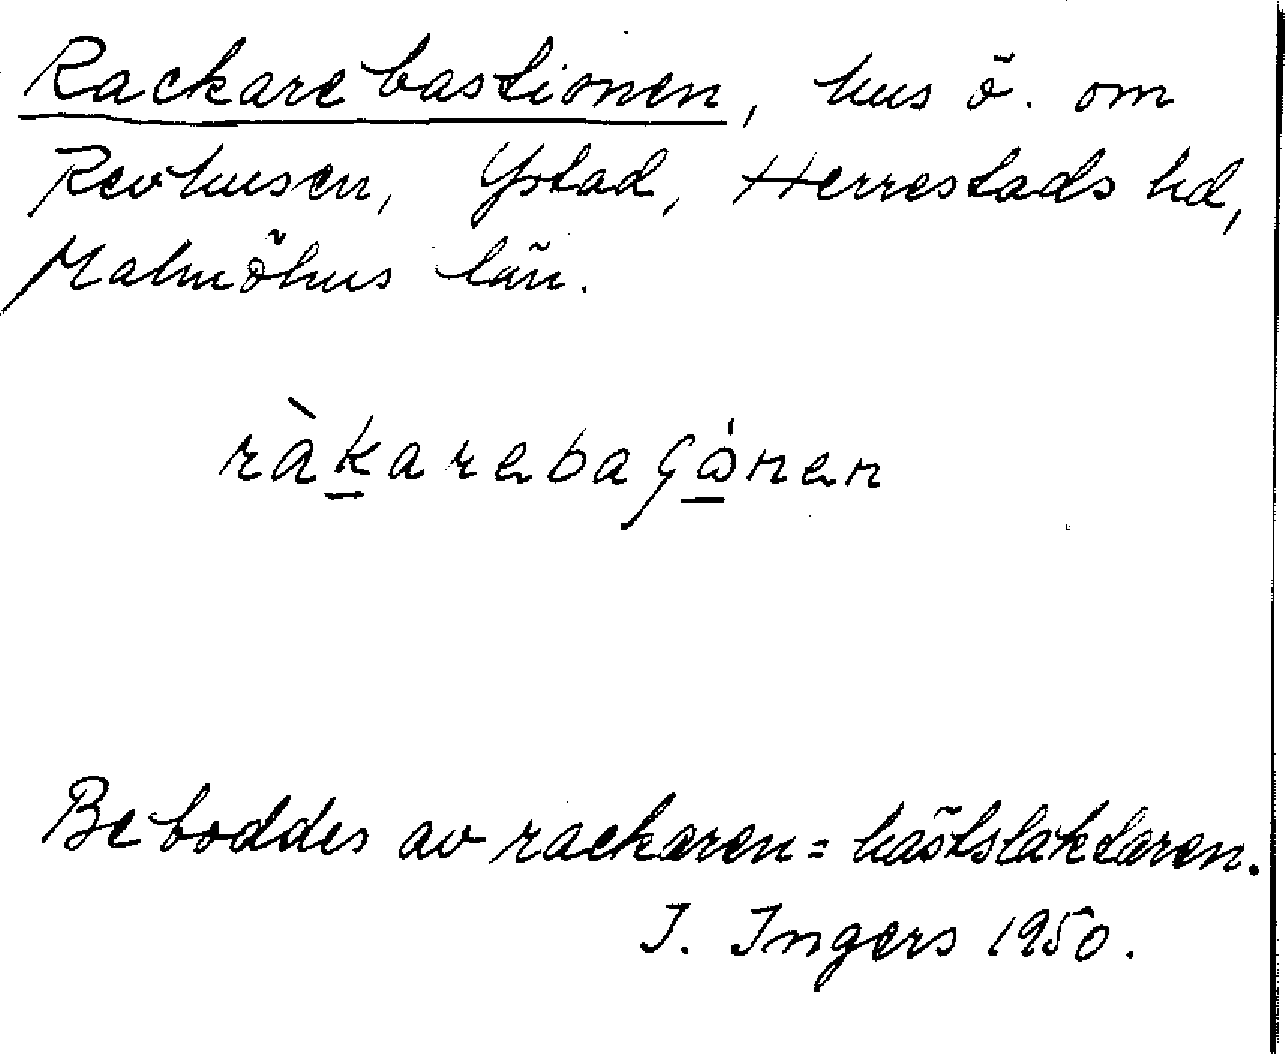 Rackarebastionen, hus ö. om
Revhusen, Ystad, Herrestads hd,
Malmöhus län.
ràkarebaʃɷ́nen
Beboddes av rackaren = hästslaktaren.
I. Ingers 1950.